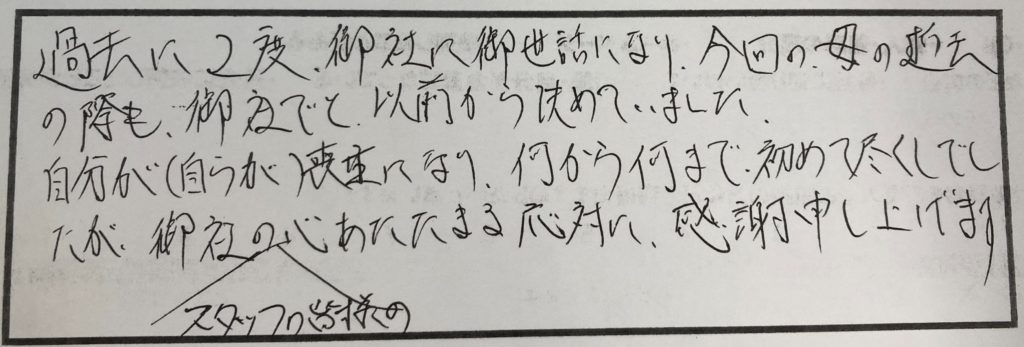 過去に2度、御社に御世話になり、今回の、母の逝去
の際も、御社でと、以前から決めていました、
自分が(自らが)喪主になり、何から何まで、初めて尽くしでし
たが、御社の心あたたまる応対に、感謝申し上げます
スタッフの皆様の